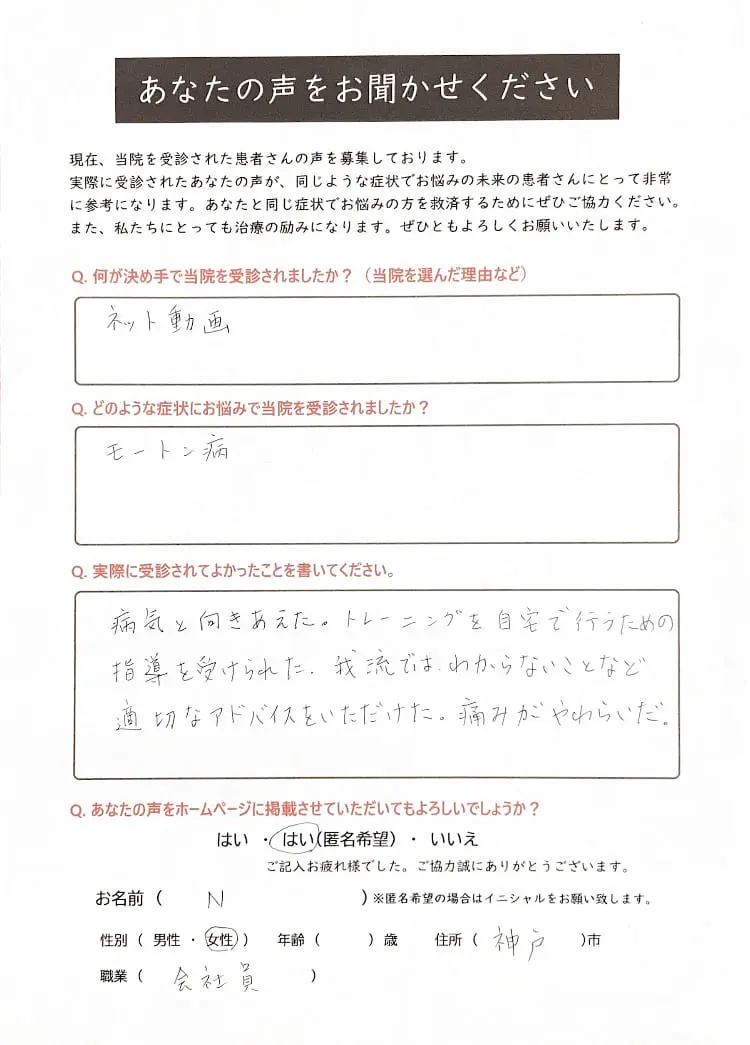 あなたの声をお聞かせください
現在、当院を受診された患者さんの声を募集しております。
実際に受診されたあなたの声が、同じような症状でお悩みの未来の患者さんにとって非常
に参考になります。あなたと同じ症状でお悩みの方を救済するためにぜひご協力ください。
また、私たちにとっても治療の励みになります。ぜひともよろしくお願いいたします。
Q. 何が決め手で当院を受診されましたか？（当院を選んだ理由など）
ネット動画
Q. どのような症状にお悩みで当院を受診されましたか？
モートン病
Q. 実際に受診されてよかったことを書いてください。
病気と向きあえた。トレーニングを自宅で行うための
指導を受けられた、我流では、わからないことなど
適切なアドバイスをいただけた。痛みがやわらいだ。
Q. あなたの声をホームページに掲載させていただいてもよろしいでしょうか？
はい ・ はい（匿名希望） ・ いいえ
ご記入お疲れ様でした。ご協力誠にありがとうございます。
お名前（ N ）※匿名希望の場合はイニシャルをお願い致します。
性別（ 男性 ・ 女性 ） 年齢（ ）歳 住所（ 神戸 ）市
職業（ 会社員 ）